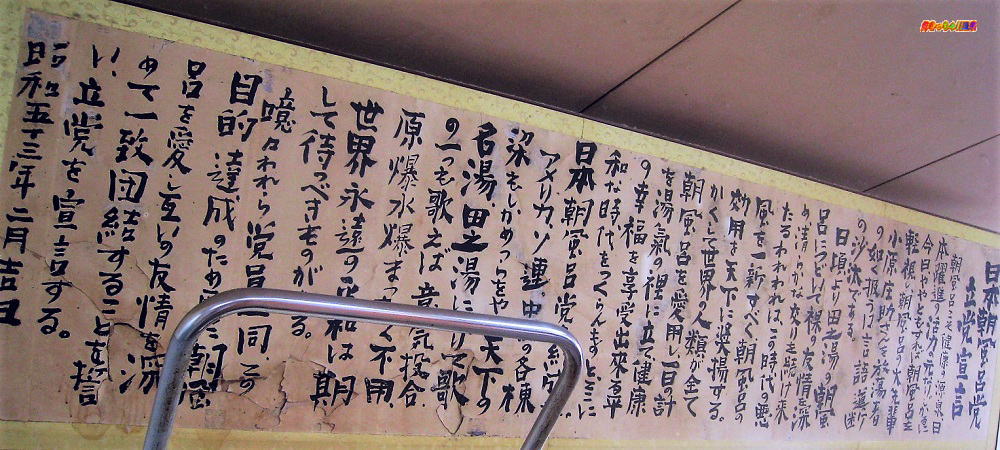 日本朝風呂党
立党宣言
朝風呂こそ健康の源泉、日
本躍進の活力の元だ。
今日ややともすれば朝風呂を
軽視し朝風呂の大先輩
小原庄助さんを放蕩者
の如く扱ふは言語道断
の沙汰である。
日頃より田之湯の朝風
呂につどいて裸の友情深
め清らかな交りを続け来
たるわれわれは、この時代の悪
風を一新すべく朝風呂の
効用を天下に奨揚する。
かくして世界の人類が全て
朝風呂を愛用し一日の計
を湯気の裡に立て健康
の幸福を享受出来る平
和な時代をつくらんもとここに
日本朝風呂党を
アメリカ、ソ連、中
梁もしかめっつらをや 天下の
名湯田之湯にひたりて歌
の一つも歌えば意気投合、
原爆水爆まったく不用、
世界永遠の平和は期
して待つべきものがある。
噫々われら党員一同、この
目的達成のため 朝風
呂を愛し互いの友情を深
めて一致団結することを誓
い、立党を宣言する。
昭和五十三年二月吉日